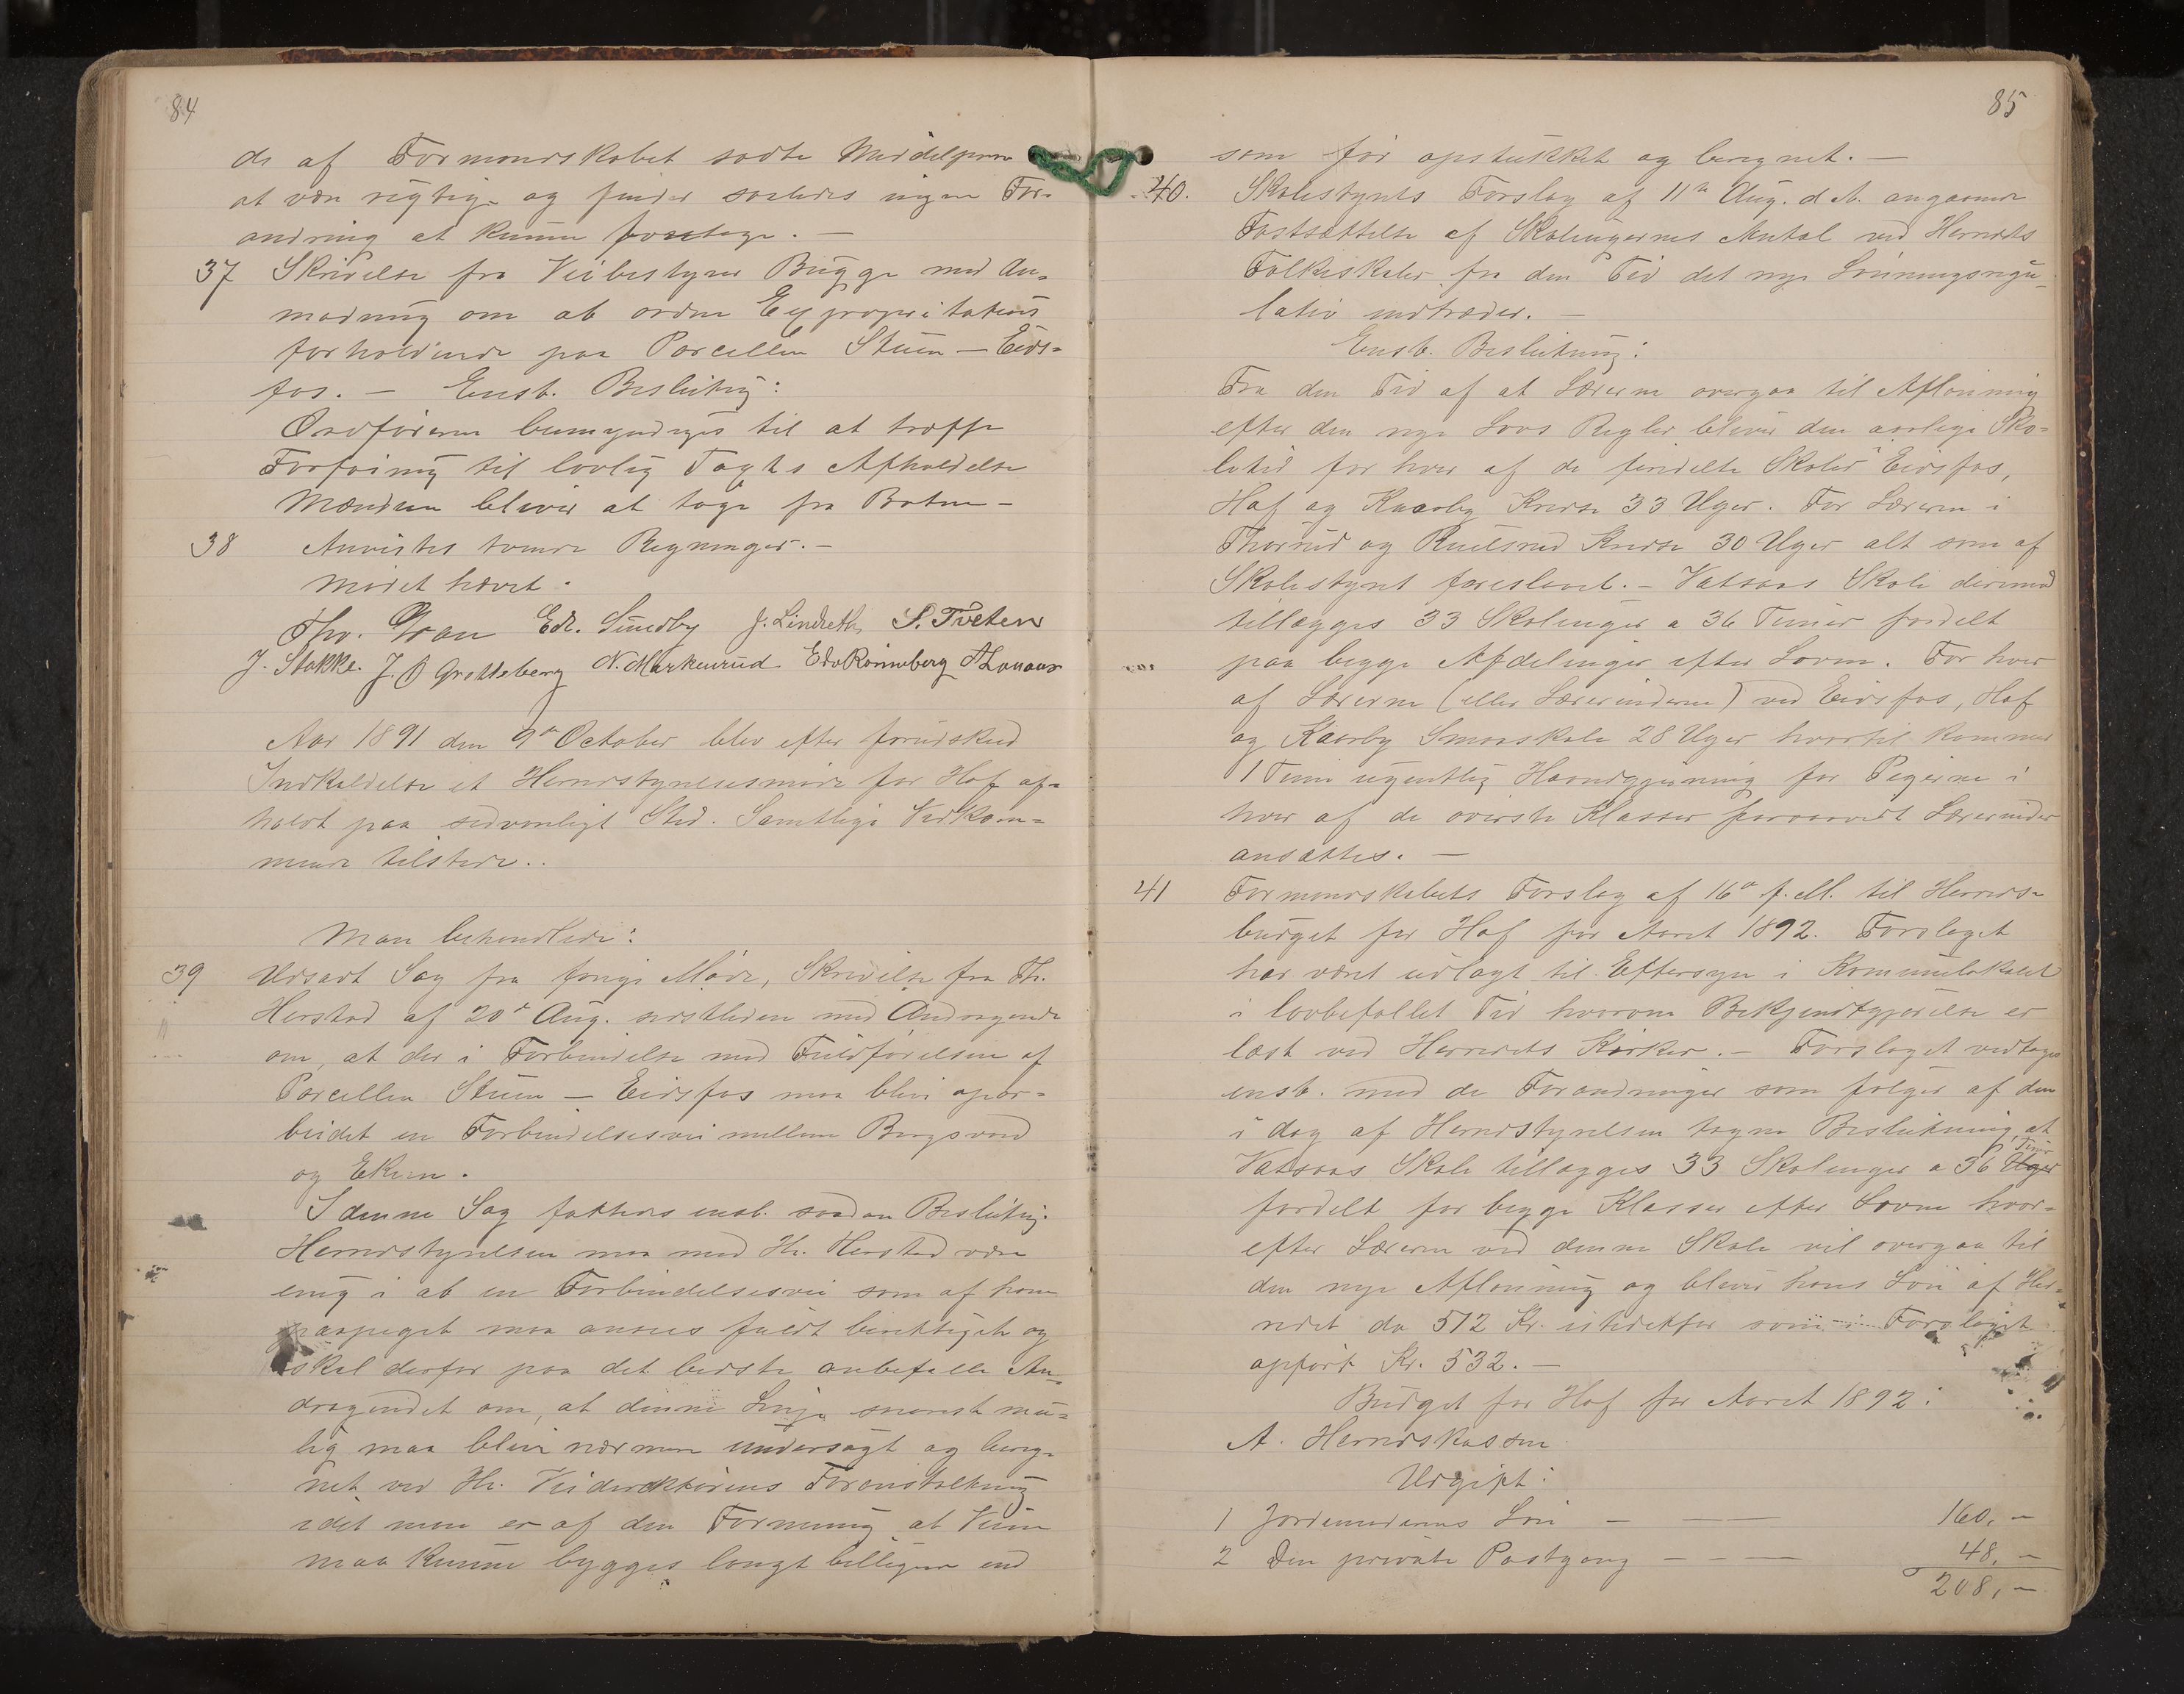 84
de af Formandskabet sadte Middelpriser
at være rigtige og finder saaledes ingen For-
andring at kunne foretage. —
37 Skrivelse fra Veibestyrer Bugge med An-
modning om at ordne Expropriations
forholdende paa Parcellen Stuen — Eids-
fos. — Enst. Beslutng:
Ordføreren bemyndiges til at træffe
Forføining til lovlig Taxts Afholdelse
Mændene bliver at tage fra Botne —
38 Anvistes tvende Regninger. —
Mødet hævet.
Thv. Gran Edv. Sundby J. Lindseth S. Tveten
J. Stokke. J. O Grotteberg N. Markerud Edv Rønneberg A Lonaas
Aar 1891 den 9de October blev efter forudskeed
Indkaldelse et Herredstyrelsesmøde for Hof af-
holdt paa sedvanligt Sted. Samtlige Vedkom-
mende tilstede..
Man behandlede:
39 Udsadt Sag fra forrige Møde, Skrivelse fra Th.
Herstad af 20de Aug. sidstleden med Andragende
om, at der i Forbindelse med Fuldførelsen af
Parcellen Stuen — Eidsfos maa blive opar-
beidet en Forbindelsesvei mellem Bergsvand
og Ekern.
I denne Sag fattedes enst. saadan Beslutng:
Herredstyrelsen maa med Hr. Herstad være
enig i at en Forbindelsesvei som af ham
paapeget maa ansees fuldt berettiget og
skal derfor paa det bedste anbefalle An-
dragendet om, at denne Linje snarest mu-
lig maa blive nærmere undersøgt og bereg-
net ved Hr. Veidirektørens Foranstaltning
idet man er af den Formening at Veien
maa kunne bygges langt billigere end
85
som før opstukket og beregnet. —
40. Skolestyrets Forslag af 11te Aug. d. A. angaaende
Fastsættelse af Skoleugernes Antal ved Herredets
Folkeskoler fra den Tid det nye Lønningsregu-
lativ indtræder. —
Enst. Beslutning:
Fra den Tid af at Lærerne overgaa til Aflønning
efter den nye Lovs Regler bliver den aarlige Sko-
letid for hver af de fuldelte Skoler Eidsfos,
Hof og Kaarby Kredse 33 Uger. For Læreren i
Thorrud og Ruelsrud Kredse 30 Uger alt som af
Skolestyret foreslaaet. — Vatsaas Skole derimod
tillægges 33 Skoleuger a 36 Timer fordelt
paa begge Afdelinger efter Loven. For hver
af Lærerne (eller Lærerinderne) ved Eidsfos, Hof
og Kaarby Smaaskole 28 Uger hvortil kommer
1 Time ugentlig Haandgjerning for Pigerne i
hver af de øverste Klasser forsaavidt Lærerinder
ansættes. —
41 Formandskabets Forslag af 16de f. M. til Herreds-
budget for Hof for Aaret 1892. Forslaget
har været udlagt til Eftersyn i Kommunelokalet
i lovbefallet Tid hvorom Bekjendtgjørelse er
læst ved Herredets Kirker. — Forslaget vedtages
enst. med de Forandringer som følger af den
i dag af Herredstyrelsen tagne Beslutning at
Vatsaas Skole tillægges 33 Skoleuger a 36 Uger Timer
fordelt for begge Klasser efter Loven hvor-
efter Læreren ved denne Skole vil overgaa til
den nye Aflønning og bliver hans Løn af Her-
redet da 512 Kr. istedetfor som i Forslaget
opført Kr. 532. —
Budget for Hof for Aaret 1892:
A. Herredskassen
Udgift:
1 Jordemoderens Løn — —— 160, —
2 Den private Postgang — — —— 48, —
208, —